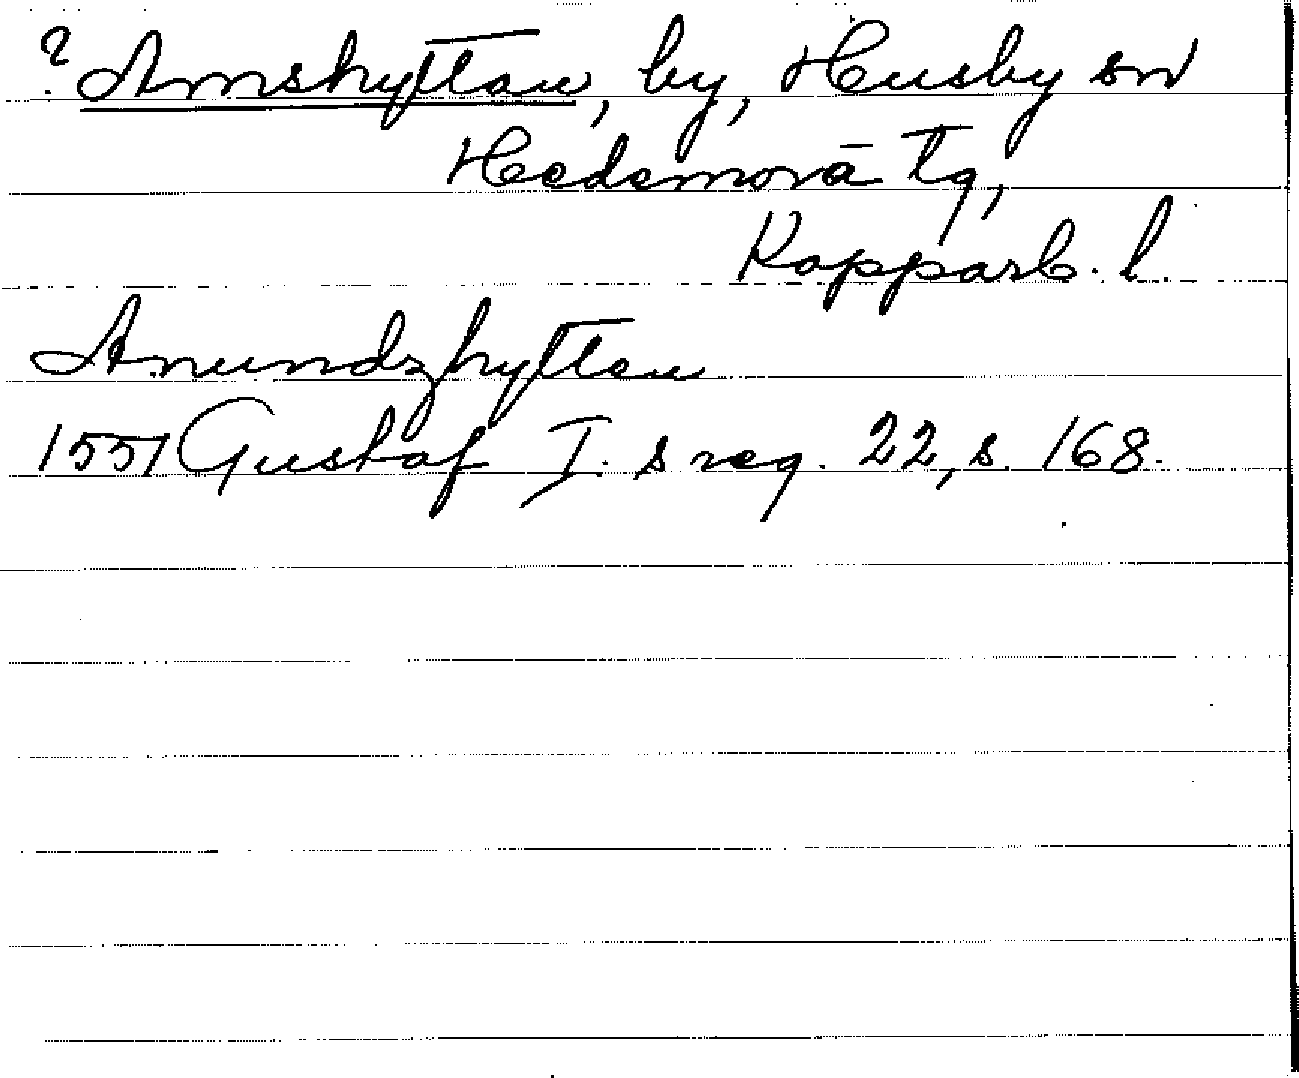 ? Amshyttan, by, Husby sn
Hedemora tg,
Kopparb. l.
Anundzhytten
1551 Gustaf I. s reg. 22, s. 168.